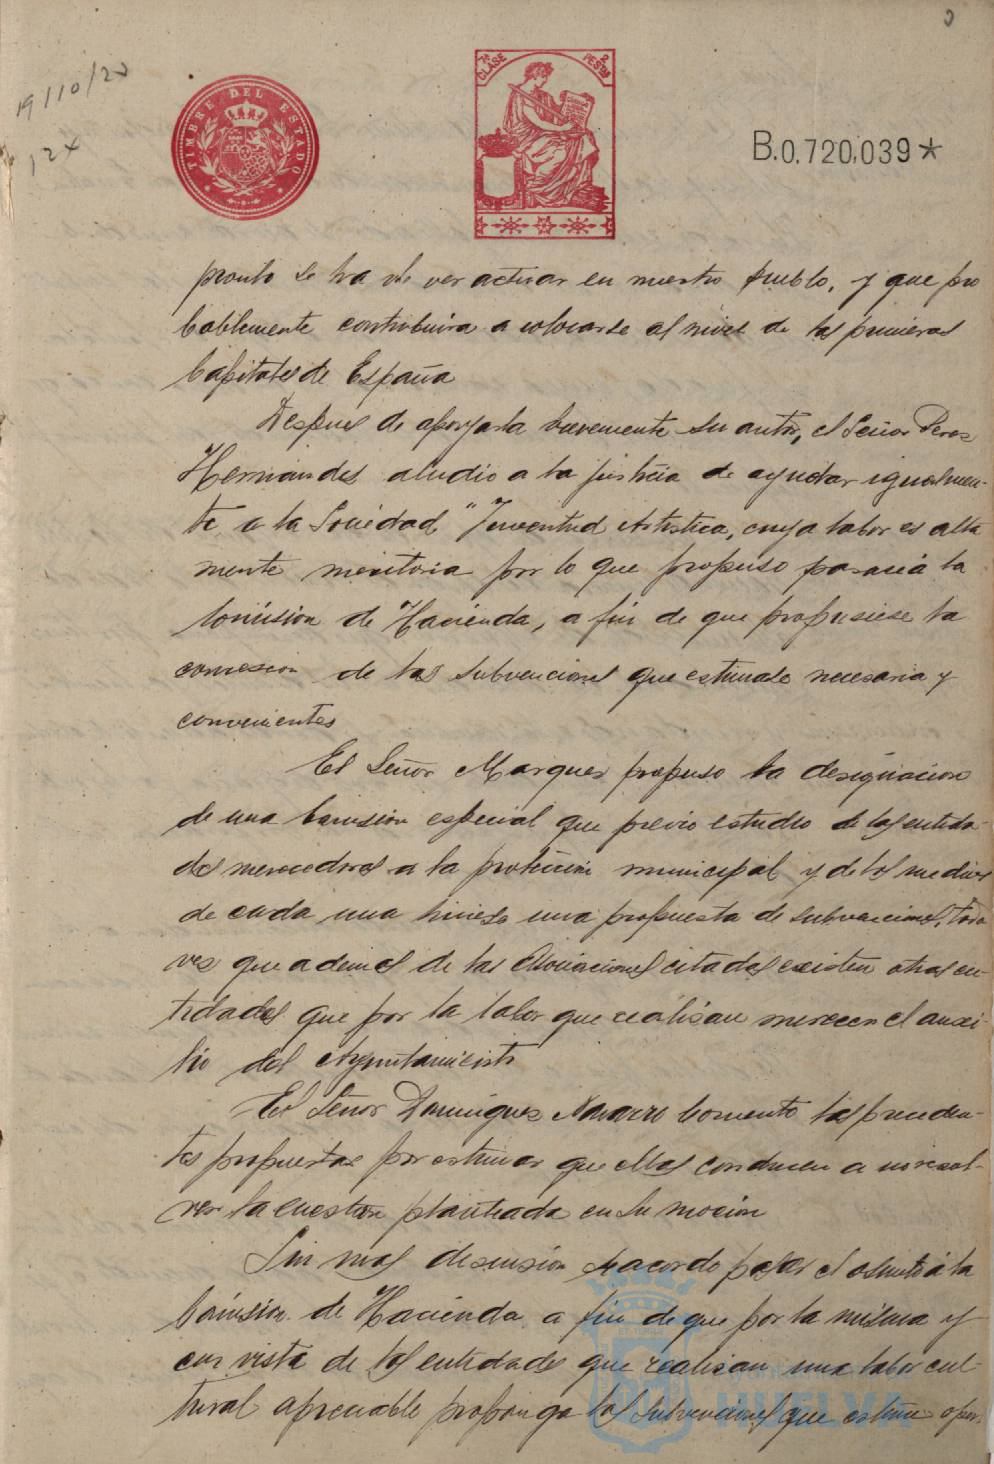 19/10/2
12x
TIMBRE DEL ESTADO
7ª CLASE 2 PESTAS
B.0,720,039*
pronto se ha de ver actuar en nuestro pueblo, y que pro
bablemente contribuira a colocarse al nivel de las primeras
Capitales de España
Despues de apoyarla brevemente su autor, el Señor Peres
Hernandes aludio a la justicia de ayudar igualmen-
te, a la Sociedad "Juventud Artistica, cuya labor es alta
mente meritoria por lo que propuso pasara á la
Comision de Hacienda, a fin de que propusiese la
concesion de las subvenciones que estimase necesaria y
convenientes
El Señor Marques propuso la designacion
de una Comision especial que previo estudio de las entida-
des merecedoras a la protección municipal y de los medios
de cada una hiciese una propuesta de subvenciones, toda
ves que ademas de las Asociaciones citadas existen otras en-
tidades que por la labor que realisan merecen el auxi-
lio del Ayuntamiento
El Señor Domingues Navarro Comento las preceden-
tes propuestas por estimar que ellas conducen a no resol-
ver la cuestion planteada en su mocion
Sin mas discusion se acordo pasar el asunto á la
Comision de Hacienda a fin de que por la misma y
con vista de las entidades que realisan una labor cul-
tural apreciable proponga las subvenciones que estime opor-
HUELVA